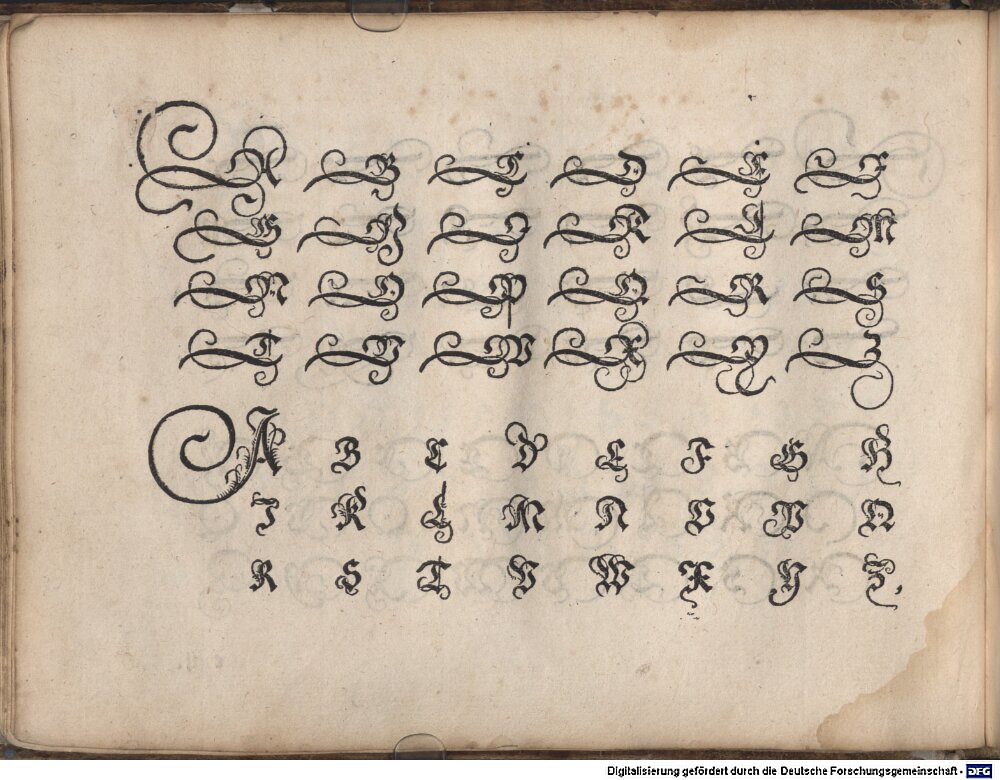 A B C D E F
G H I K L M
N O P Q R S
T V W X Y Z
A B C D E F G H
I K L M N O P Q
R S T V W X Y Z.
Digitalisierung gefördert durch die Deutsche Forschungsgemeinschaft - DFG